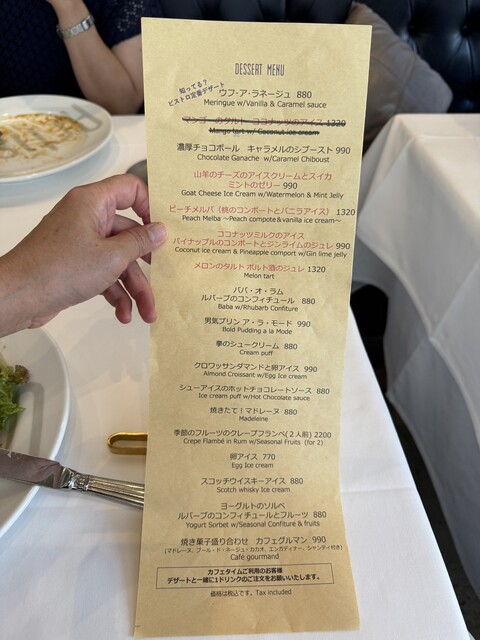 DESSERT MENU
知ってる？
ビストロ定番デザート
ウフ・ア・ラネージュ 880
Meringue w/Vanilla & Caramel sauce
マンゴーのタルト ココナッツのアイス 1320
Mango tart w/ Coconut ice cream
濃厚チョコボール キャラメルのシブースト 990
Chocolate Ganache w/Caramel Chiboust
山羊のチーズのアイスクリームとスイカ
ミントのゼリー 990
Goat Cheese Ice Cream w/Watermelon & Mint Jelly
ピーチメルバ（桃のコンポートとバニラアイス） 1320
Peach Melba ～Peach compote＆vanilla ice cream～
ココナッツミルクのアイス
パイナップルのコンポートとジンライムのジュレ 990
Coconut ice cream & Pineapple comport w/Gin lime Jelly
メロンのタルト ポルト酒のジュレ 1320
Melon tart
ババ・オ・ラム
ルバーブのコンフィチュール 880
Baba w/Rhubarb Confiture
男気プリン ア・ラ・モード 990
Bold Pudding a la Mode
拳のシュークリーム 880
Cream puff
クロワッサンダマンドと卵アイス 990
Almond Croissant w/Egg Ice cream
シューアイスのホットチョコレートソース 880
Ice cream puff w/Hot Chocolate sauce
焼きたて！マドレーヌ 880
Madeleine
季節のフルーツのクレープフランベ(２人前) 2200
Crepe Flambé in Rum w/Seasonal Fruits (for 2)
卵アイス 770
Egg Ice cream
スコッチウイスキーアイス 880
Scotch whisky Ice cream
ヨーグルトのソルベ
ルバーブのコンフィチュールとフルーツ 880
Yogurt Sorbet w/Seasonal Confiture & fruits
焼き菓子盛り合わせ カフェグルマン 990
(マドレーヌ、ブール・ド・ネージュ・カカオ、エンガディナー、シャンティ付き)
Café gourmand
カフェタイムご利用のお客様
デザートと一緒に1ドリンクのご注文をお願いいたします。
価格は税込です。Tax included